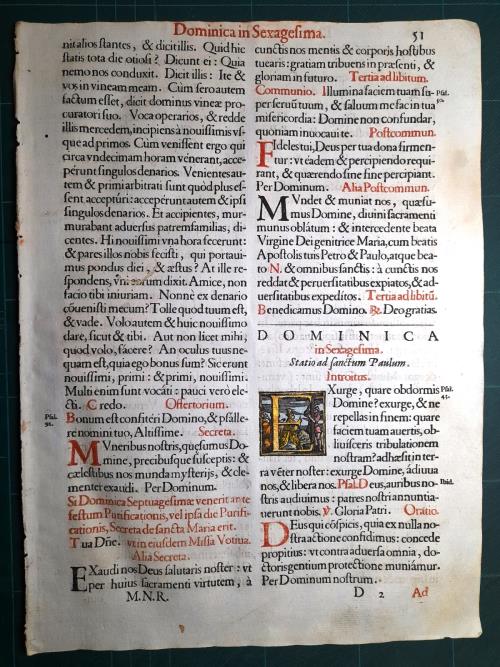 Dominica in Sexagesima.
51
nit alios stantes, & dicit illis. Quid hic
statis tota die otiosi? Dicunt ei: Quia
nemo nos conduxit. Dicit illis: Ite &
vos in vineam meam. Cùm sero autem
factum esset, dicit dominus vineæ pro-
curatori suo. Voca operarios, & redde
illis mercedem, incipiens à nouissimis vs-
que ad primos. Cùm venissent ergo qui
circa vndecimam horam venerant, acce-
pérunt singulos denarios. Venientes au-
tem & primi arbitrati sunt quòd plus es-
sent acceptúri: accepérunt autem & ipsi
singulos denarios. Et accipientes, mur-
murabant aduersus patremfamilias, di-
centes. Hi nouissimi vna hora fecerunt:
& pares illos nobis fecisti, qui portaui-
mus pondus diei, & æstus? At ille re-
spondens, vni eorum dixit. Amice, non
facio tibi iniuriam. Nonnè ex denario
cōuenisti mecum? Tolle quod tuum est,
& vade. Volo autem & huic nouissimo
dare, sicut & tibi. Aut non licet mihi,
quod volo, facere? An oculus tuus ne-
quam est, quia ego bonus sum? Sic erunt
nouissimi, primi: & primi, nouissimi.
Multi enim sunt vocáti: pauci verò ele-
cti. Credo. Offertorium.
Psal. 91.
Bonum est confitéri Domino, & psálle-
re nomini tuo, Altissime. Secreta.
MVneribus nostris, quæsumus Do-
mine, precibusque susceptis: &
cælestibus nos munda mysterijs, & cle-
menter exaudi. Per Dominum.
Si Dominica Septuagesimæ venerit ante
festum Purificationis, vel ipsa die Purifi-
cationis, Secreta de sancta Maria erit.
Tua Dñe. vt in eiusdem Missa Votiua.
Alia Secreta.
EXaudi nos Deus salutaris noster: vt
per huius sacramenti virtutem, à
M.N.R.
cunctis nos mentis & corporis hostibus
tuearis: gratiam tribuens in præsenti, &
gloriam in futuro. Tertia ad libitum.
Communio. Illumina faciem tuam su-
Psal.
per seruū tuum, & saluum me fac in tua
misericordia: Domine non confundar,
quoniam inuocaui te. Postcommun.
FIdeles tui, Deus per tua dona firmen-
tur: vt éadem & percipiendo requi-
rant, & quærendo sine fine percipiant.
Per Dominum. Alia Postcommun.
MVndet & muniat nos, quæsu-
mus Domine, diuini sacramenti
munus oblátum: & intercedente beata
Virgine Dei genitrice Maria, cum beatis
Apostolis tuis Petro & Paulo, atque bea-
to N. & omnibus sanctis: à cunctis nos
reddat & peruersitatibus expiatos, & ad-
uersitatibus expeditos. Tertia ad libitū.
Benedicamus Domino. ℟. Deo gratias.
DOMINICA
in Sexagesima.
Statio ad sanctum Paulum.
Introitus.
EXurge, quare obdormis
Psal. 43.
Domine? exurge, & ne
repellas in finem: quare
faciem tuam auertis, ob-
liuisceris tribulationem
nostram? adhæsit in ter-
ra vẽter noster: exurge Domine, ádiuua
nos, & libera nos. Psal. Deus, auribus no-
Ibid.
stris audiuimus: patres nostri annuntia-
uerunt nobis. ℣. Gloria Patri. Oratio.
DEus qui cōspicis, quia ex nulla no-
stra actione confidimus: concede
propitius: vt contra aduersa omnia, do-
ctoris gentium protectione muniámur.
Per Dominum nostrum.
D 2
Ad